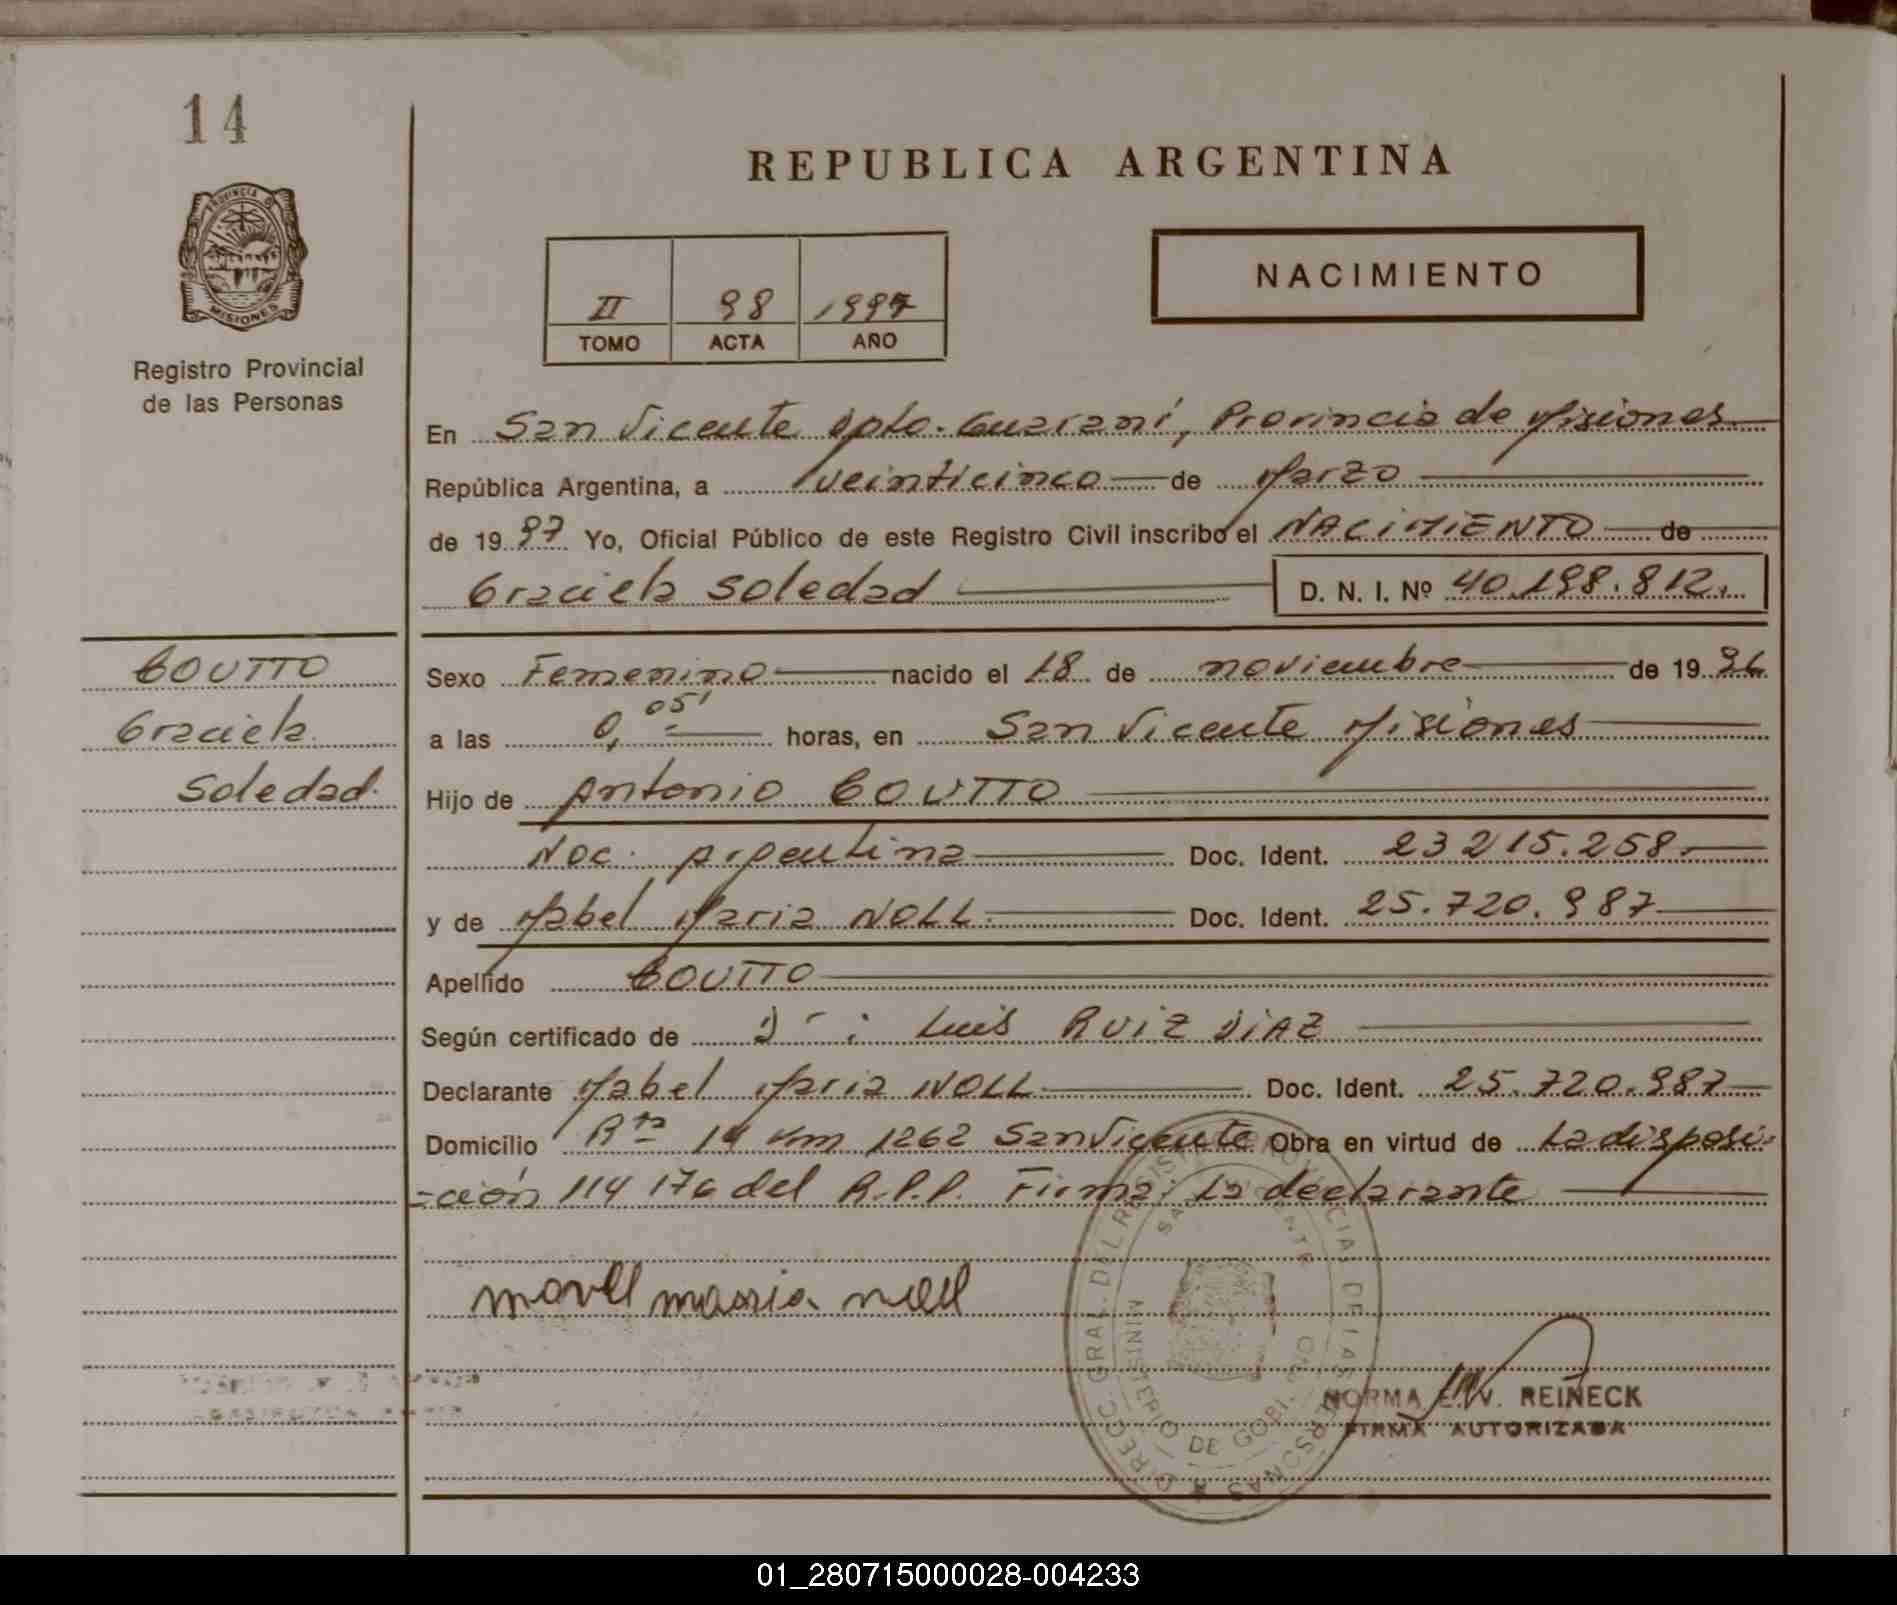 14
PROVINCIA DE
MISIONES
Registro Provincial
de las Personas
REPUBLICA ARGENTINA
II 98 1997
TOMO ACTA AÑO
NACIMIENTO
En San Vicente Dpto. Guaraní, Provincia de Misiones
República Argentina, a veinticinco de Marzo
de 1997 Yo, Oficial Público de este Registro Civil inscribo el NACIMIENTO de
Graciela Soledad D. N. I. Nº 40.198.812.
COUTTO
Graciela
Soledad.
Sexo Femenino nacido el 18 de noviembre de 1996
a las 0,05' horas, en San Vicente Misiones
Hijo de Antonio COUTTO
Nac. Argentina Doc. Ident. 23 215.258.
y de Mabel Maria NOLL. Doc. Ident. 25.720.987
Apellido COUTTO
Según certificado de Dr: Luis RUIZ DIAZ
Declarante Mabel Maria NOLL Doc. Ident. 25.720.987
Domicilio Rta 14 Km 1262 San Vicente Obra en virtud de La disposi-
-ción 114 176 del R.P.P. Firma: La declarante
mavel maria noll
DIRECC. GRAL. DEL REGISTRO PROVINCIAL DE LAS PERSONAS
SAN VICENTE
MINISTERIO DE GOBIERNO
NORMA E. W. REINECK
FIRMA AUTORIZADA
01_280715000028-004233